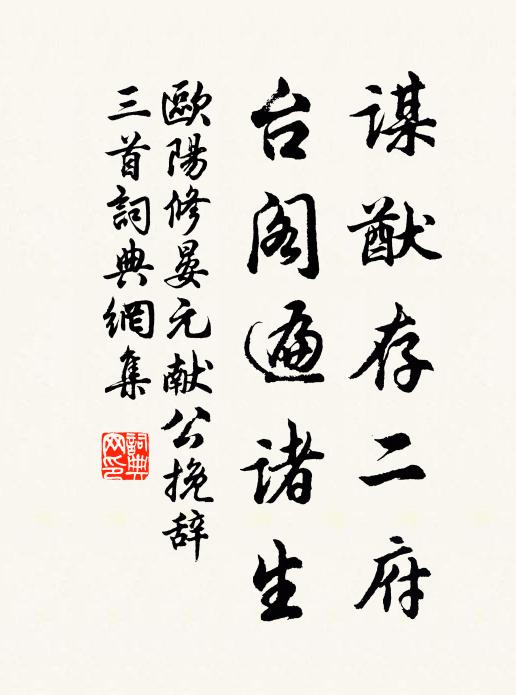 謀猷存二府
台阁遍诸生
歐陽修晏元献公挽辞
三首詞典網集
詞典
网印